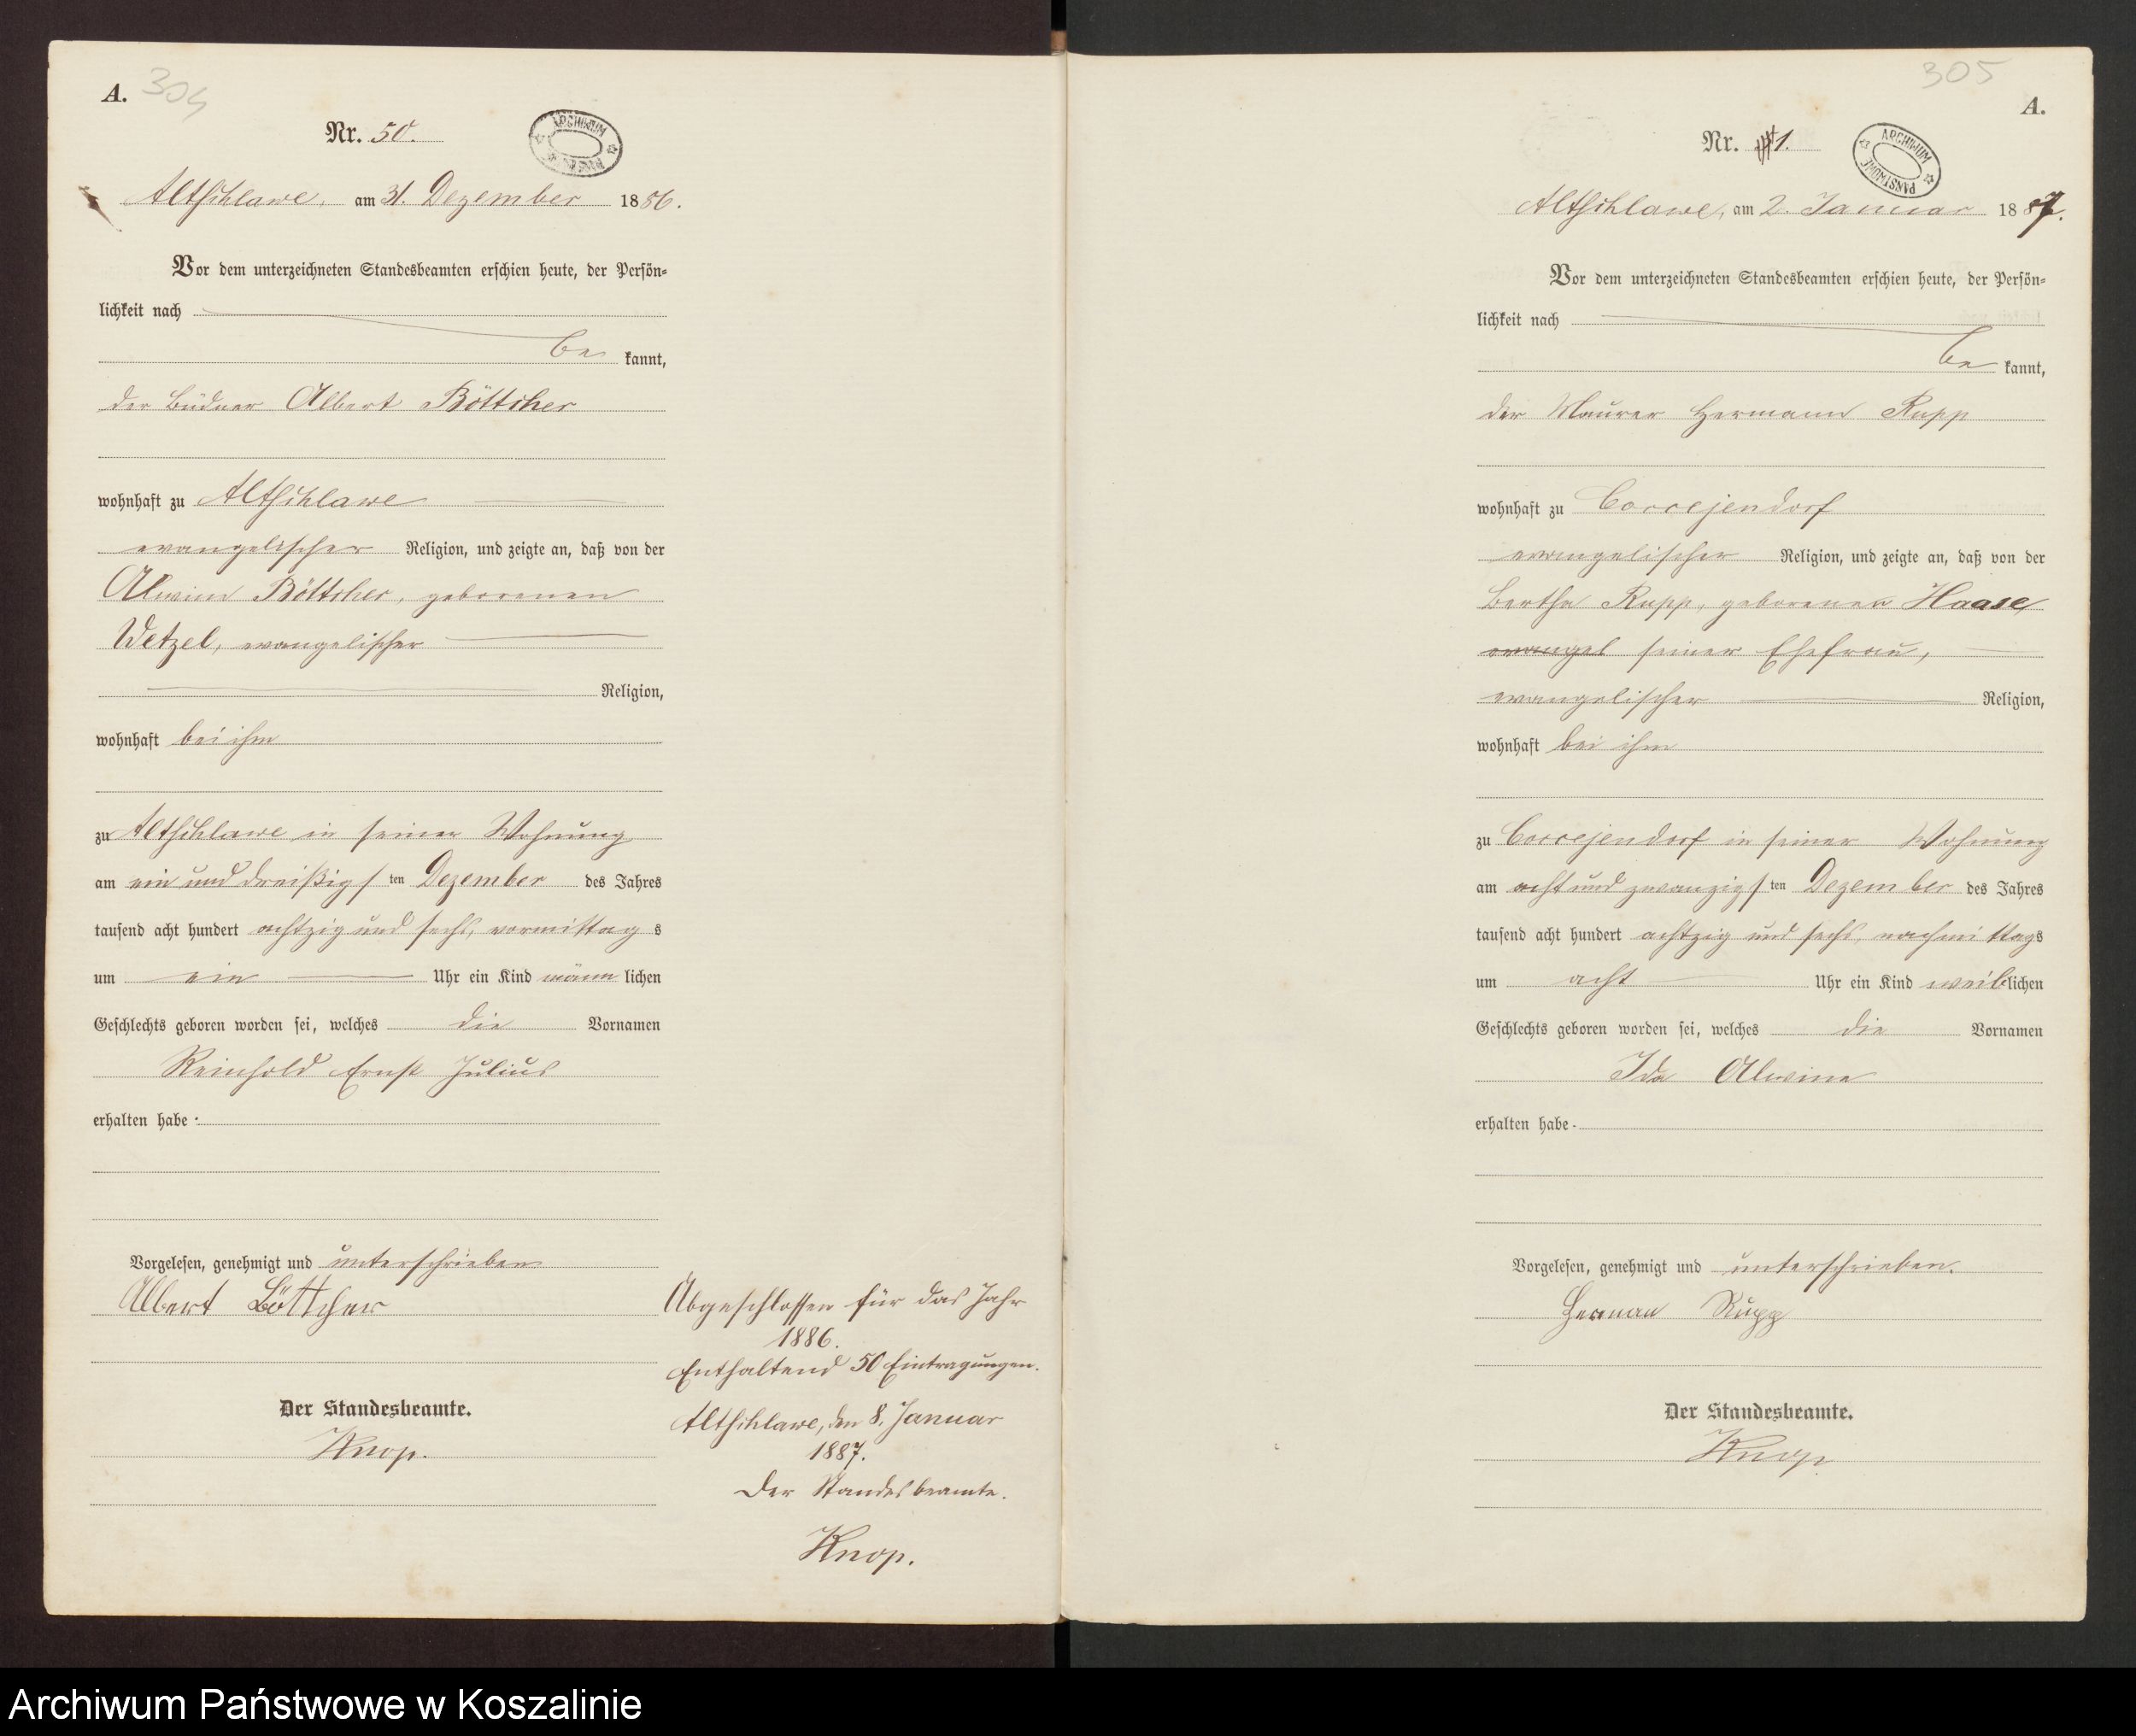 A. 304
Nr. 50.
ARCHIWUM
Altschlawe, am 31. Dezember 1886.
Vor dem unterzeichneten Standesbeamten erschien heute, der Persön-
lichkeit nach
be kannt,
der Büdner Albert Böttcher
wohnhaft zu Altschlawe
evangelischer Religion, und zeigte an, daß von der
Alwine Böttcher, geborenen
Wetzel, evangelischer
Religion,
wohnhaft bei ihm
zu Altschlawe in seiner Wohnung
am ein und dreißigsten Dezember des Jahres
tausend acht hundert achtzig und sechs, vormittags
um ein Uhr ein Kind männlichen
Geschlechts geboren worden sei, welches die Vornamen
Reinhold Ernst Julius
erhalten habe.
Vorgelesen, genehmigt und unterschrieben
Albert Böttcher
Der Standesbeamte.
Knop.
Abgeschlossen für das Jahr
1886.
Enthaltend 50 Eintragungen.
Altschlawe, den 8. Januar
1887.
Der Standesbeamte.
Knop.
305
A.
Nr. 1.
ARCHIWUM PAŃSTWOWE
Altschlawe, am 2. Januar 1887.
Vor dem unterzeichneten Standesbeamten erschien heute, der Persön-
lichkeit nach
be kannt,
der Maurer Hermann Rupp
wohnhaft zu Coccejendorf
evangelischer Religion, und zeigte an, daß von der
Bertha Rupp, geborenen Haase
evangel seiner Ehefrau,
evangelischer Religion,
wohnhaft bei ihm
zu Coccejendorf in seiner Wohnung
am acht und zwanzigsten Dezember des Jahres
tausend acht hundert achtzig und sechs, nachmittags
um acht Uhr ein Kind weiblichen
Geschlechts geboren worden sei, welches die Vornamen
Ida Alwine
erhalten habe.
Vorgelesen, genehmigt und unterschrieben.
Herman Rupp
Der Standesbeamte.
Knop
Archiwum Państwowe w Koszalinie